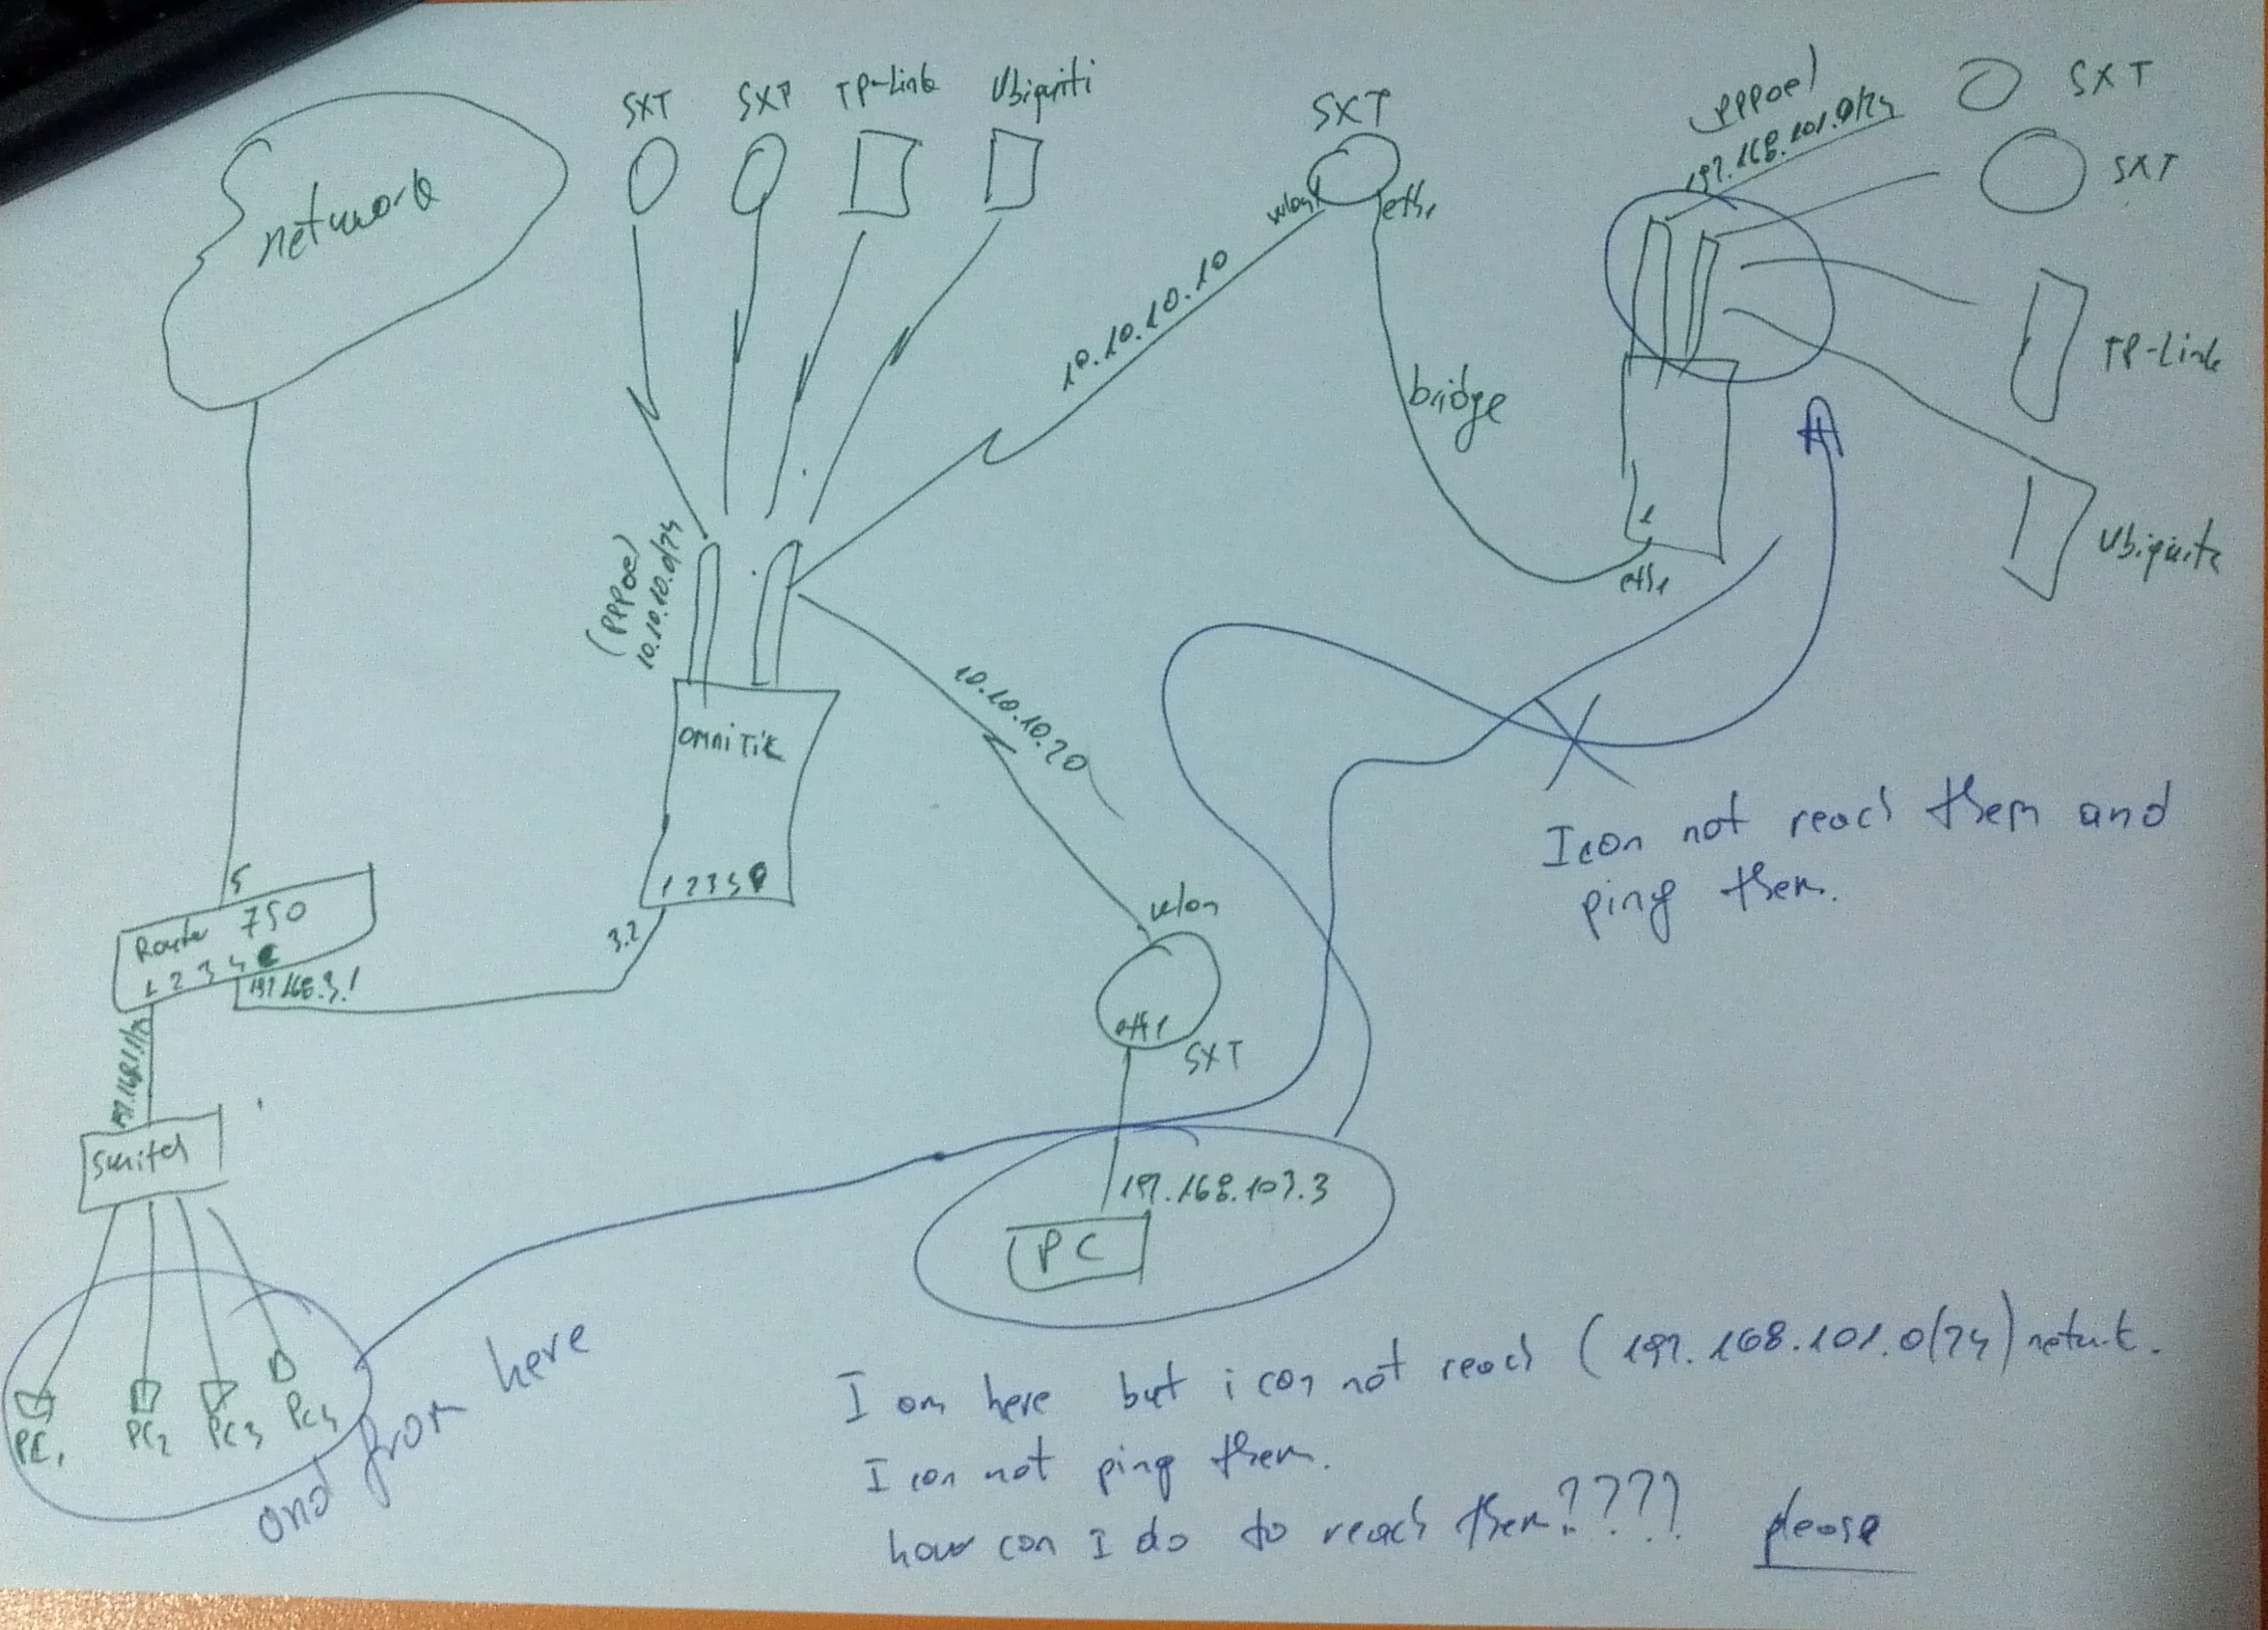 network
SXT
SXT
TP-Link
Ubiquiti
SXT
wlan1
eth1
(pppoe)
192.168.101.0/24
SXT
SXT
TP-Link
Ubiquite
10.10.10.10
bridge
1
eth1
(PPPoe)
10.10.10.0/24
OMNiTiK
1 2 3 4
10.10.10.20
3.2
5
Router 750
1 2 3 4
192.168.3.1
Switch
wlan
eth1
SXT
192.168.103.3
PC
PC1
PC2
PC3
PC4
and from here
I can not reach them and
ping them.
I am here but i can not reach (192.168.101.0/24) network.
I can not ping them.
how can I do to reach them???? please